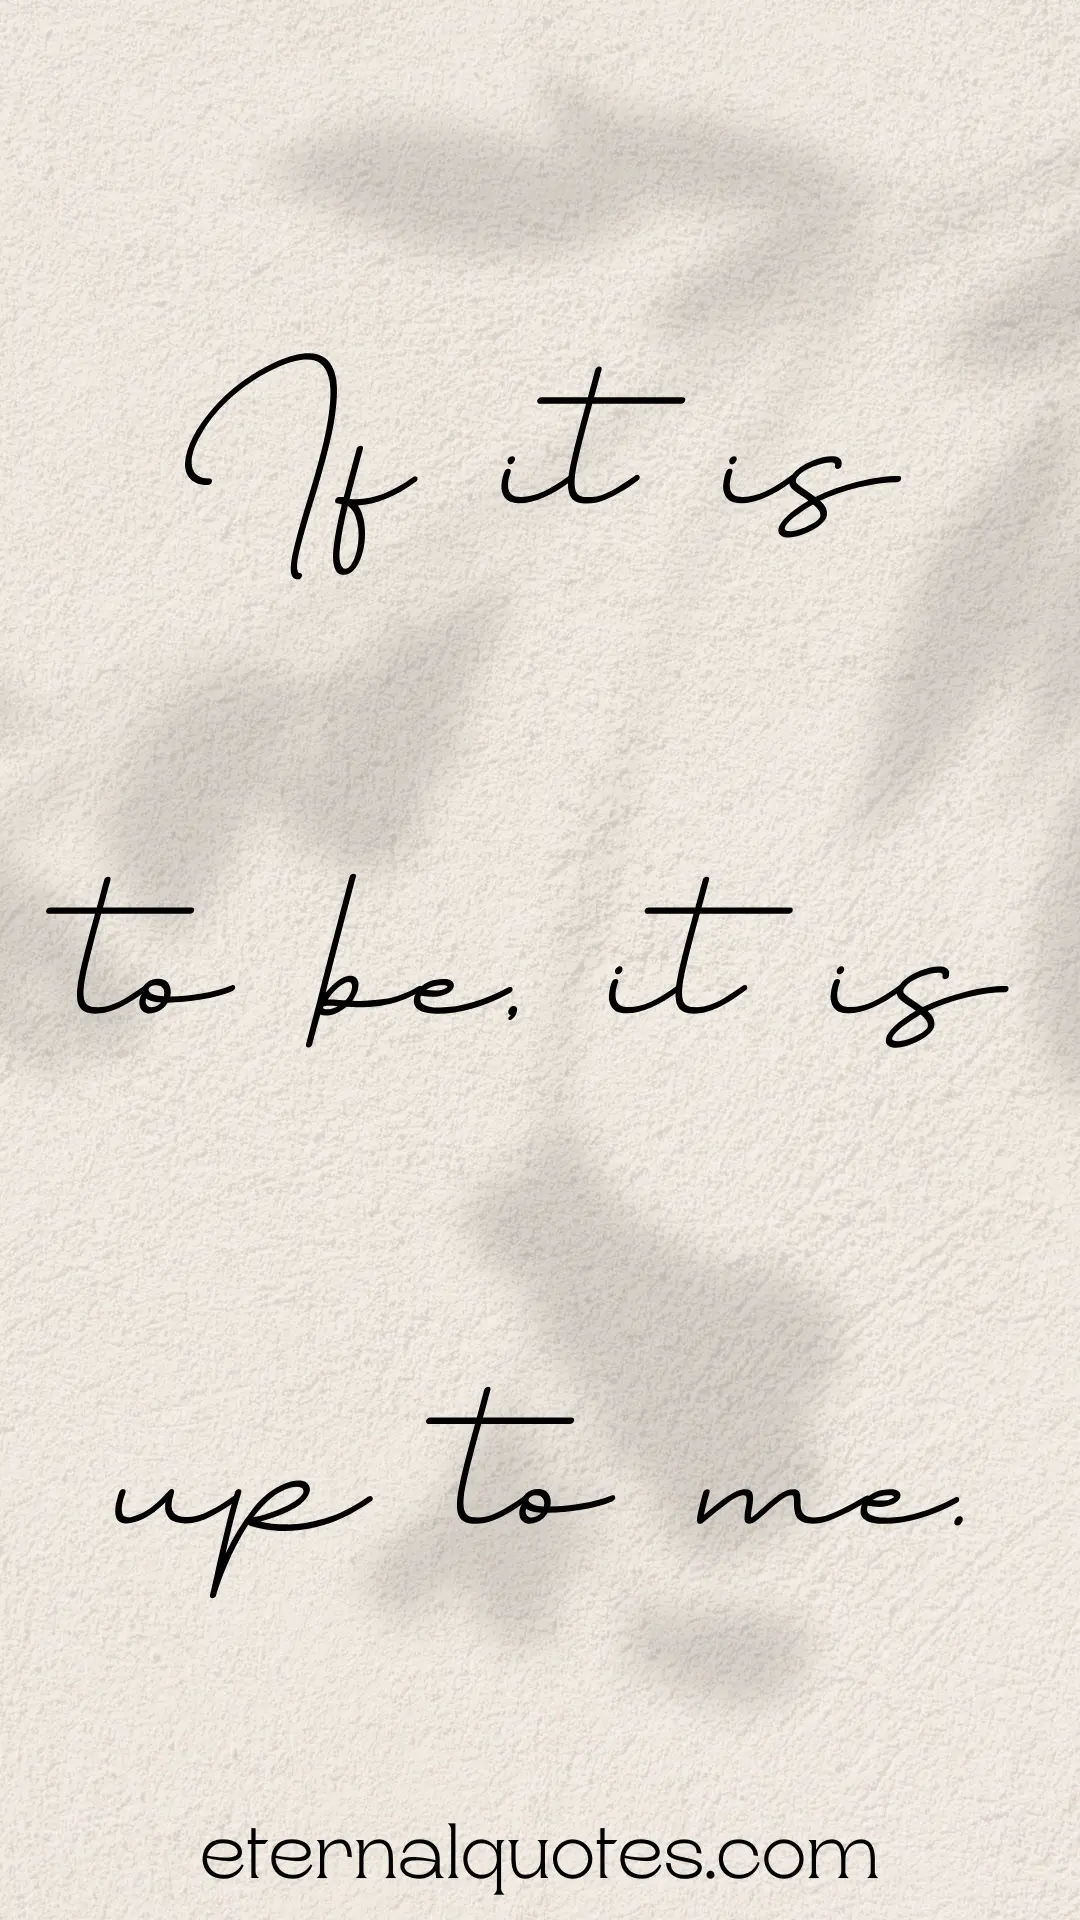 If it is
to be, it is
up to me.
eternalquotes.com